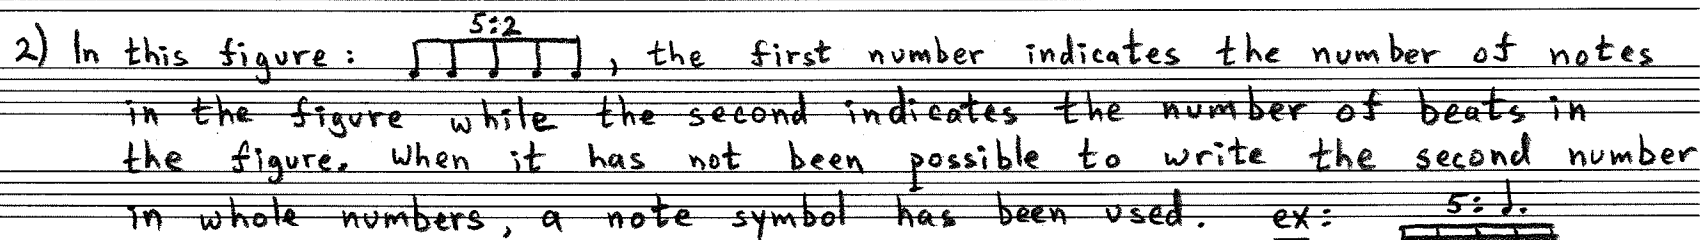 5:2
2) In this figure: , the first number indicates the number of notes
in the figure while the second indicates the number of beats in
the figure. When it has not been possible to write the second number
in whole numbers, a note symbol has been used. ex: 5: 𝅗𝅥.